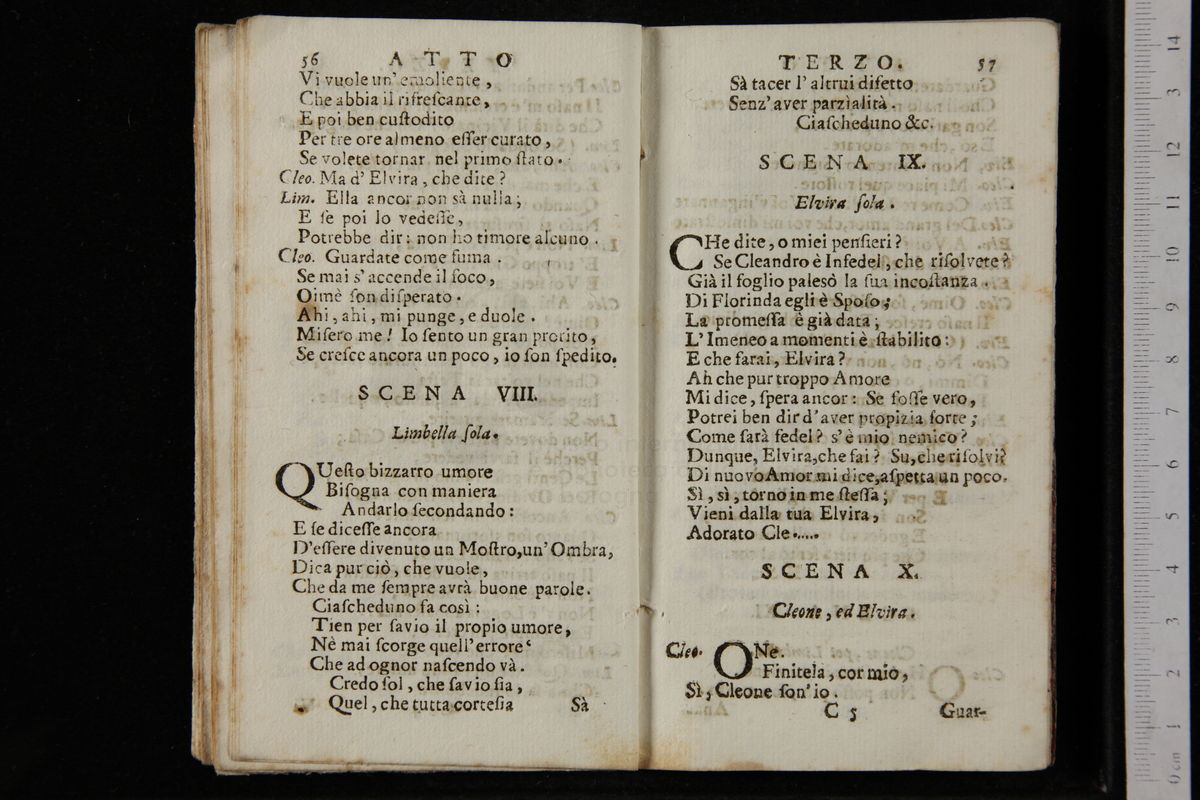 56 ATTO
Vi vuole un' emoliente,
Che abbia il rifreſcante,
E poi ben cuſtodito
Per tre ore almeno eſſer curato,
Se volete tornar nel primo ſtato.
Cleo. Ma d' Elvira, che dite?
Lim. Ella ancor non sà nulla;
E ſe poi lo vedeſſe,
Potrebbe dir: non ho timore alcuno.
Cleo. Guardate come fuma.
Se mai s' accende il foco,
Oimè ſon diſperato.
Ahi, ahi, mi punge, e duole.
Miſero me! Io ſento un gran prorito,
Se creſce ancora un poco, io ſon ſpedito.
SCENA VIII.
Limbella ſola.
QUeſto bizzarro umore
Biſogna con maniera
Andarlo ſecondando:
E ſe diceſſe ancora
D'eſſere divenuto un Moſtro, un' Ombra,
Dica pur ciò, che vuole,
Che da me ſempre avrà buone parole.
Ciaſcheduno fa così:
Tien per ſavio il propio umore,
Nè mai ſcorge quell' errore
Che ad ognor naſcendo và.
Credo ſol, che ſavio ſia,
Quel, che tutta corteſia Sà
TERZO. 57
Sà tacer l' altrui difetto
Senz' aver parzialità.
Ciaſcheduno &c.
SCENA IX.
Elvira ſola.
CHe dite, o miei penſieri?
Se Cleandro è Infedel, che riſolvete?
Già il foglio palesò la ſua incoſtanza.
Di Florinda egli è Spoſo;
La promeſſa è già data;
L' Imeneo a momenti è ſtabilito:
E che farai, Elvira?
Ah che pur troppo Amore
Mi dice, ſpera ancor: Se foſſe vero,
Potrei ben dir d'aver propizia ſorte;
Come ſarà fedel? s' è mio nemico?
Dunque, Elvira, che fai? Su, che riſolvi?
Di nuovo Amor mi dice, aſpetta un poco.
Sì, sì, torno in me ſteſſa;
Vieni dalla tua Elvira,
Adorato Cle.....
SCENA X.
Cleone, ed Elvira.
Cleo. ONe.
Finitela, cor mio,
Sì, Cleone ſon' io.
C 5 Guar-
14
13
12
11
10
9
8
7
6
5
4
3
2
1
0 cm